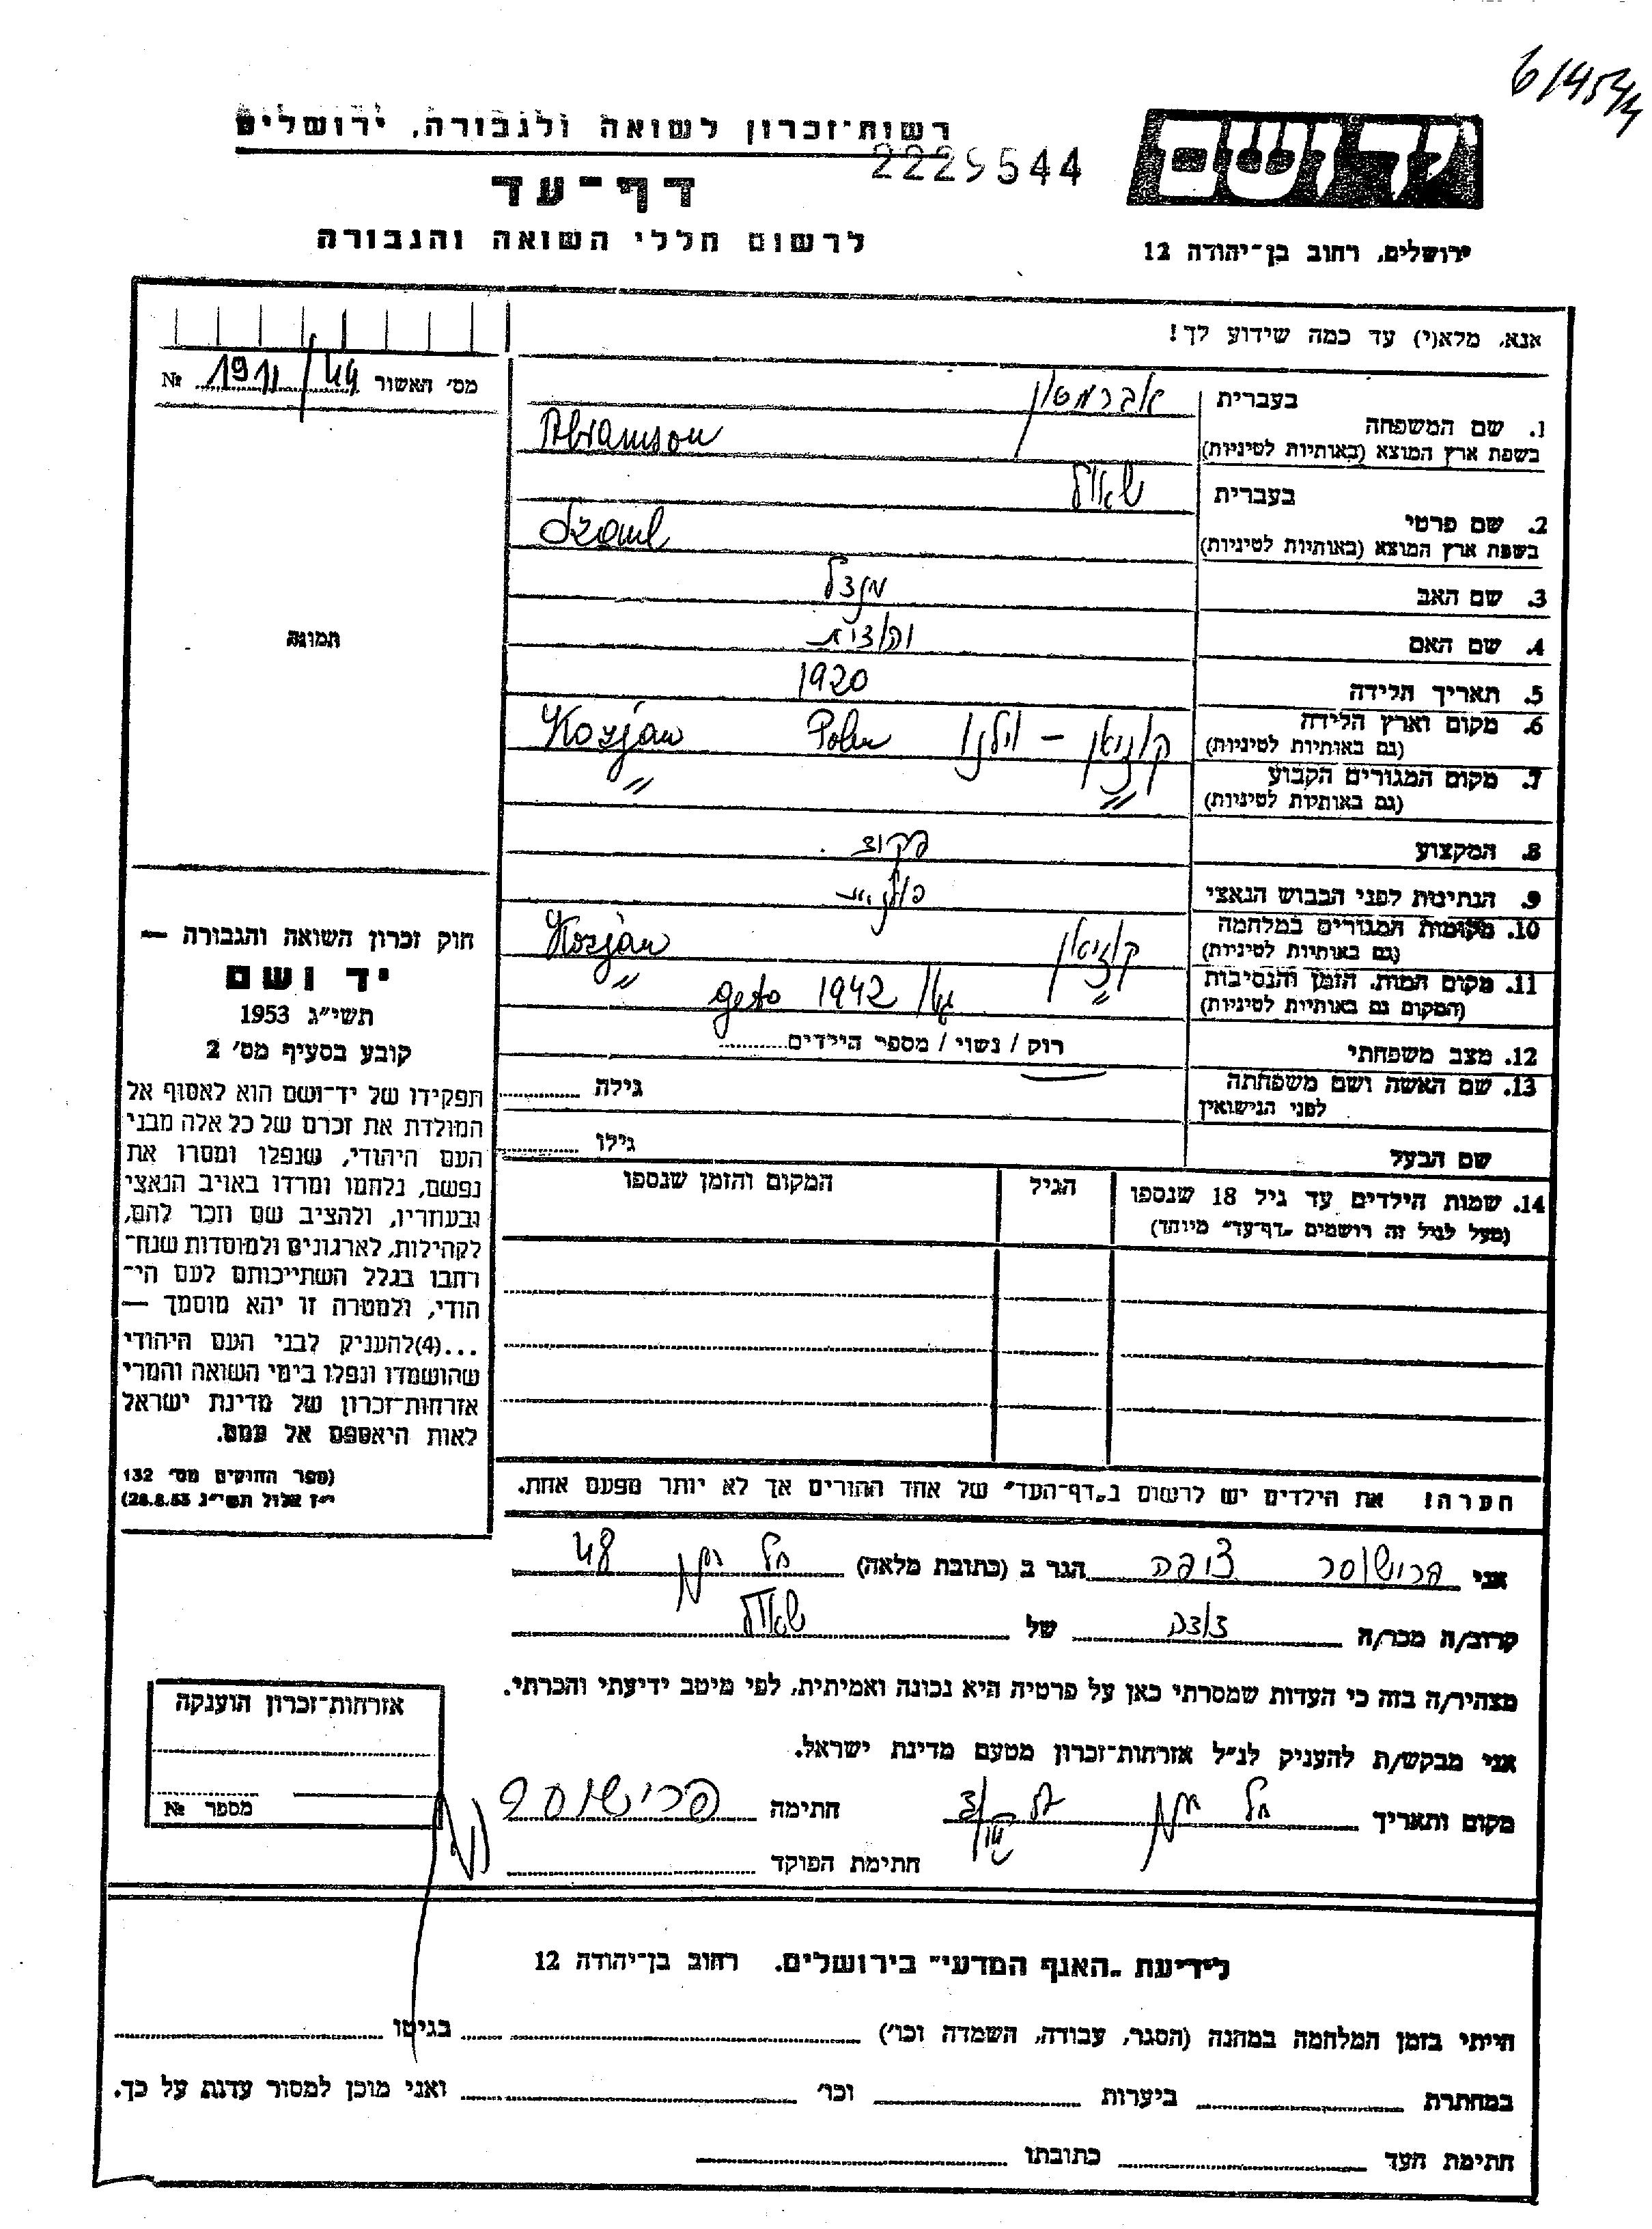 6/4544
רשות־זכרון לשואה ולגבורה, ירושלים
2229544
יד ושם
דף־עד
לרשום חללי השואה והגבורה
ירושלים, רחוב בן־יהודה 12
אנא, מלא(י) עד כמה שידוע לך!
מס׳ האשור 1911/44 №
1. שם המשפחה
בעברית אברמסון
בשפת ארץ המוצא (באותיות לטיניות) Abramson
2. שם פרטי
בעברית שאול
בשפת ארץ המוצא (באותיות לטיניות) Szaul
3. שם האב מנדל
4. שם האם
5. תאריך הלידה 1920
6. מקום וארץ הלידה קוזיאן – וילנו Polen Kozjan
(גם באותיות לטיניות)
7. מקום המגורים הקבוע " "
(גם באותיות לטיניות)
8. המקצוע פקיד
9. הנתינות לפני הכבוש הנאצי פולנית
10. מקומות המגורים במלחמה קוזיאן Kozjan
(גם באותיות לטיניות)
11. מקום המות, הזמן והנסיבות " גטו 1942 geto "
(המקום גם באותיות לטיניות)
12. מצב משפחתי רווק / נשוי / מספר הילדים
13. שם האשה ושם משפחתה גילה
לפני הנישואין
שם הבעל גילו
14. שמות הילדים עד גיל 18 שנספו הגיל המקום והזמן שנספו
(מעל לגיל זה רושמים „דף־עד" מיוחד)
הערה! את הילדים יש לרשום ב„דף־העד" של אחד ההורים אך לא יותר מפעם אחת.
תמונה
חוק זכרון השואה והגבורה —
יד ושם
תשי״ג 1953
קובע בסעיף מס׳ 2
תפקידו של יד־ושם הוא לאסוף אל
המולדת את זכרם של כל אלה מבני
העם היהודי, שנפלו ומסרו את
נפשם, נלחמו ומרדו באויב הנאצי
ובעוזריו, ולהציב שם וזכר להם,
לקהילות, לארגונים ולמוסדות שנח־
רבו בגלל השתייכותם לעם הי־
הודי, ולמטרה זו יהא מוסמך —
...(4)להעניק לבני העם היהודי
שהושמדו ונפלו בימי השואה והמרי
אזרחות־זכרון של מדינת ישראל
לאות היאספם אל עמם.
(ספר החוקים מס׳ 132
י״ז אלול תשי״ג 28.8.53)
אני פרישוסר צופה הגר ב (כתובת מלאה) תל 48
קרוב/ה מכר/ה דודה של שאול
מצהיר/ה בזה כי העדות שמסרתי כאן על פרטיה היא נכונה ואמיתית, לפי מיטב ידיעתי והכרתי.
אני מבקש/ת להעניק לנ״ל אזרחות־זכרון מטעם מדינת ישראל.
מקום ותאריך תל חתימה
חתימת הפוקד
אזרחות־זכרון הוענקה
מספר №
לידיעת „האגף המדעי" בירושלים, רחוב בן־יהודה 12
הייתי בזמן המלחמה במחנה (הסגר, עבודה, השמדה וכו׳) בגיטו
במחתרת ביערות וכו׳ ואני מוכן למסור עדות על כך.
חתימת העד כתובתו